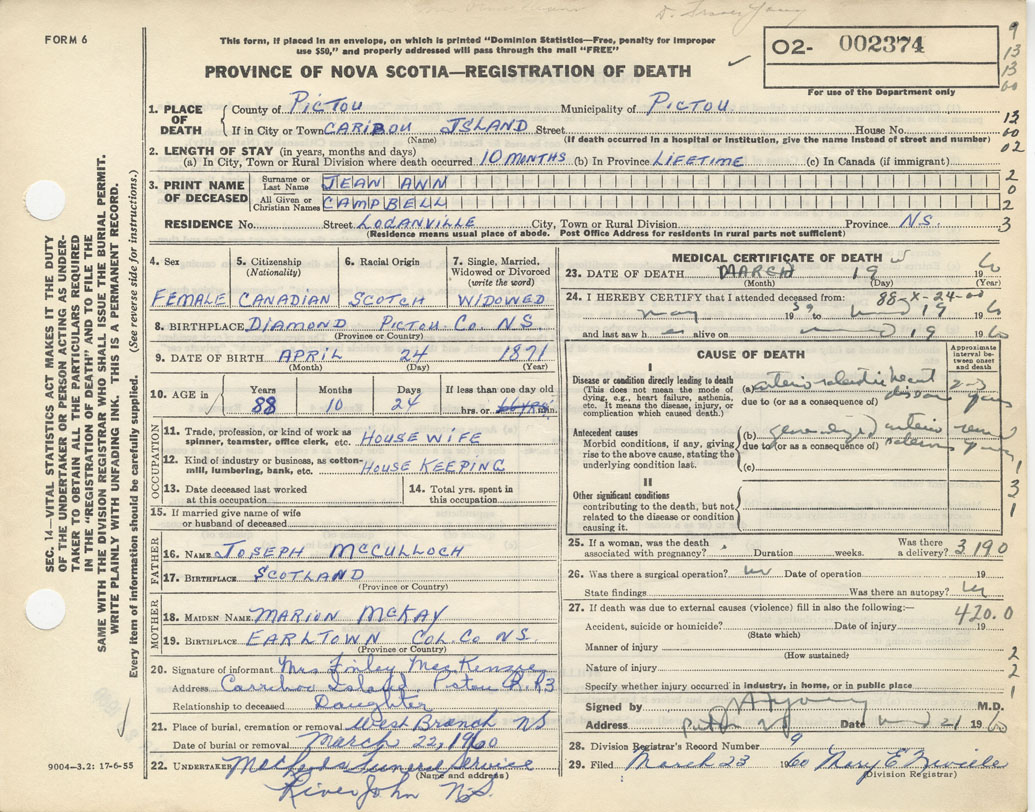 FORM 6
This form, if placed in an envelope, on which is printed "Dominion Statistics—Free, penalty for improper
use $50," and properly addressed will pass through the mail "FREE"
PROVINCE OF NOVA SCOTIA—REGISTRATION OF DEATH
02- 002374
For use of the Department only
SEC. 14—VITAL STATISTICS ACT MAKES IT THE DUTY
OF THE UNDERTAKER OR PERSON ACTING AS UNDER-
TAKER TO OBTAIN ALL THE PARTICULARS REQUIRED
IN THE "REGISTRATION OF DEATH" AND TO FILE THE
SAME WITH THE DIVISION REGISTRAR WHO SHALL ISSUE THE BURIAL PERMIT.
WRITE PLAINLY WITH UNFADING INK. THIS IS A PERMANENT RECORD.
Every item of information should be carefully supplied. (See reverse side for instructions.)
1. PLACE OF DEATH
County of PICTOU Municipality of PICTOU
If in City or Town CARIBOU ISLAND Street House No.
(Name) (If death occurred in a hospital or institution, give the name instead of street and number)
2. LENGTH OF STAY (in years, months and days)
(a) In City, Town or Rural Division where death occurred 10 MONTHS (b) In Province LIFETIME (c) In Canada (if immigrant)
3. PRINT NAME OF DECEASED
Surname or Last Name JEAN ANN
All Given or Christian Names CAMPBELL
RESIDENCE No. Street LOGANVILLE City, Town or Rural Division Province NS
(Residence means usual place of abode. Post Office Address for residents in rural parts not sufficient)
4. Sex 5. Citizenship (Nationality) 6. Racial Origin 7. Single, Married, Widowed or Divorced (write the word)
FEMALE CANADIAN SCOTCH WIDOWED
8. BIRTHPLACE DIAMOND PICTOU CO. N.S.
(Province or Country)
9. DATE OF BIRTH APRIL 24 1871
(Month) (Day) (Year)
10. AGE in Years Months Days If less than one day old
88 10 24 hrs. or min.
OCCUPATION
11. Trade, profession, or kind of work as
spinner, teamster, office clerk, etc. HOUSE WIFE
12. Kind of industry or business, as cotton-
mill, lumbering, bank, etc. HOUSE KEEPING
13. Date deceased last worked at this occupation
14. Total yrs. spent in this occupation
15. If married give name of wife
or husband of deceased
FATHER
16. NAME JOSEPH McCULLOCH
17. BIRTHPLACE SCOTLAND
(Province or Country)
MOTHER
18. MAIDEN NAME MARION McKAY
19. BIRTHPLACE EARLTOWN COL. CO N.S.
(Province or Country)
20. Signature of informant Mrs Finley MacKenzie
Address Carriboo Island Pictou R.R3
Relationship to deceased Daughter
21. Place of burial, cremation or removal West Branch NS
Date of burial or removal March 22, 1960
22. UNDERTAKER Funeral Service
(Name and address)
River John N.S.
9004—3.2: 17-6-55
MEDICAL CERTIFICATE OF DEATH
23. DATE OF DEATH MARCH 19 1960
(Month) (Day) (Year)
24. I HEREBY CERTIFY that I attended deceased from: 88y X-24-00
May 1959 to 19 1960
and last saw h er alive on 19 1960
CAUSE OF DEATH
Approximate interval between onset and death
I
Disease or condition directly leading to death
(This does not mean the mode of
dying, e.g., heart failure, asthenia,
etc. It means the disease, injury, or
complication which caused death.)
(a) arteriosclerotic heart
due to (or as a consequence of) disease years
Antecedent causes
Morbid conditions, if any, giving
rise to the above cause, stating the
underlying condition last.
(b) generalized arterio
due to (or as a consequence of)
(c)
II
Other significant conditions
contributing to the death, but not
related to the disease or condition
causing it.
25. If a woman, was the death
associated with pregnancy? Duration weeks. Was there a delivery? 3190
26. Was there a surgical operation? no Date of operation 19
State findings Was there an autopsy? no
27. If death was due to external causes (violence) fill in also the following:— 420.0
Accident, suicide or homicide? Date of injury 19
(State which)
Manner of injury
(How sustained)
Nature of injury
Specify whether injury occurred in industry, in home, or in public place
Signed by M.D.
Address Date 21 1960
28. Division Registrar's Record Number 9
29. Filed March 23 1960 Mary E
(Division Registrar)